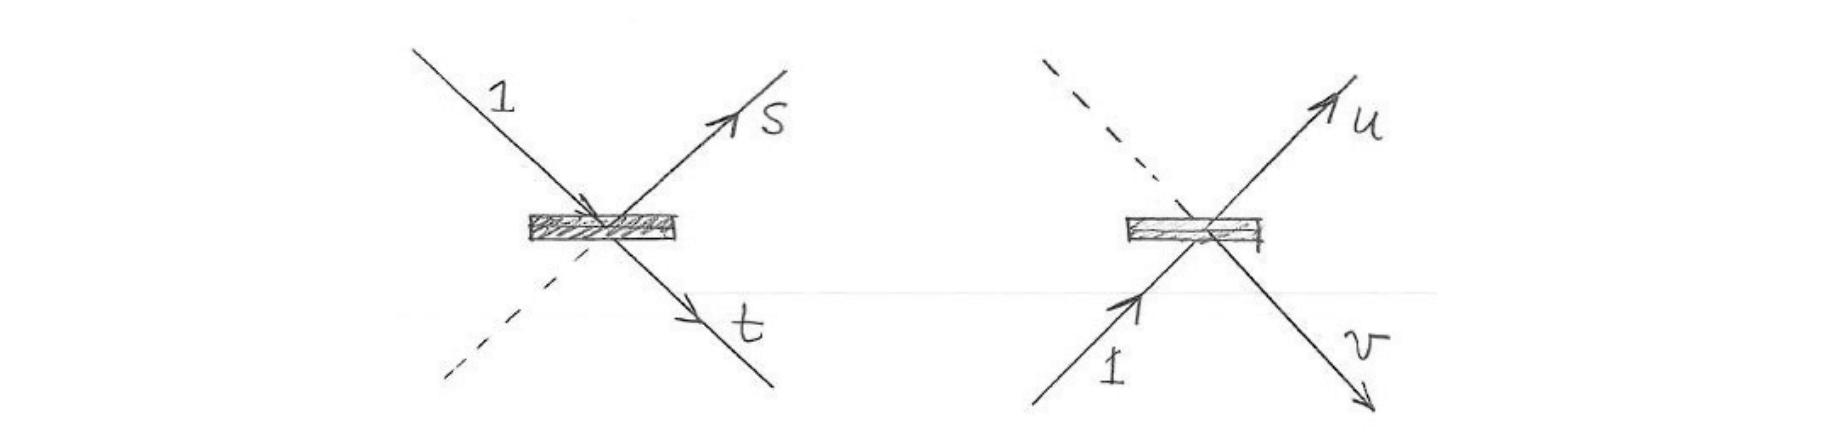 1
s
t
u
1
v